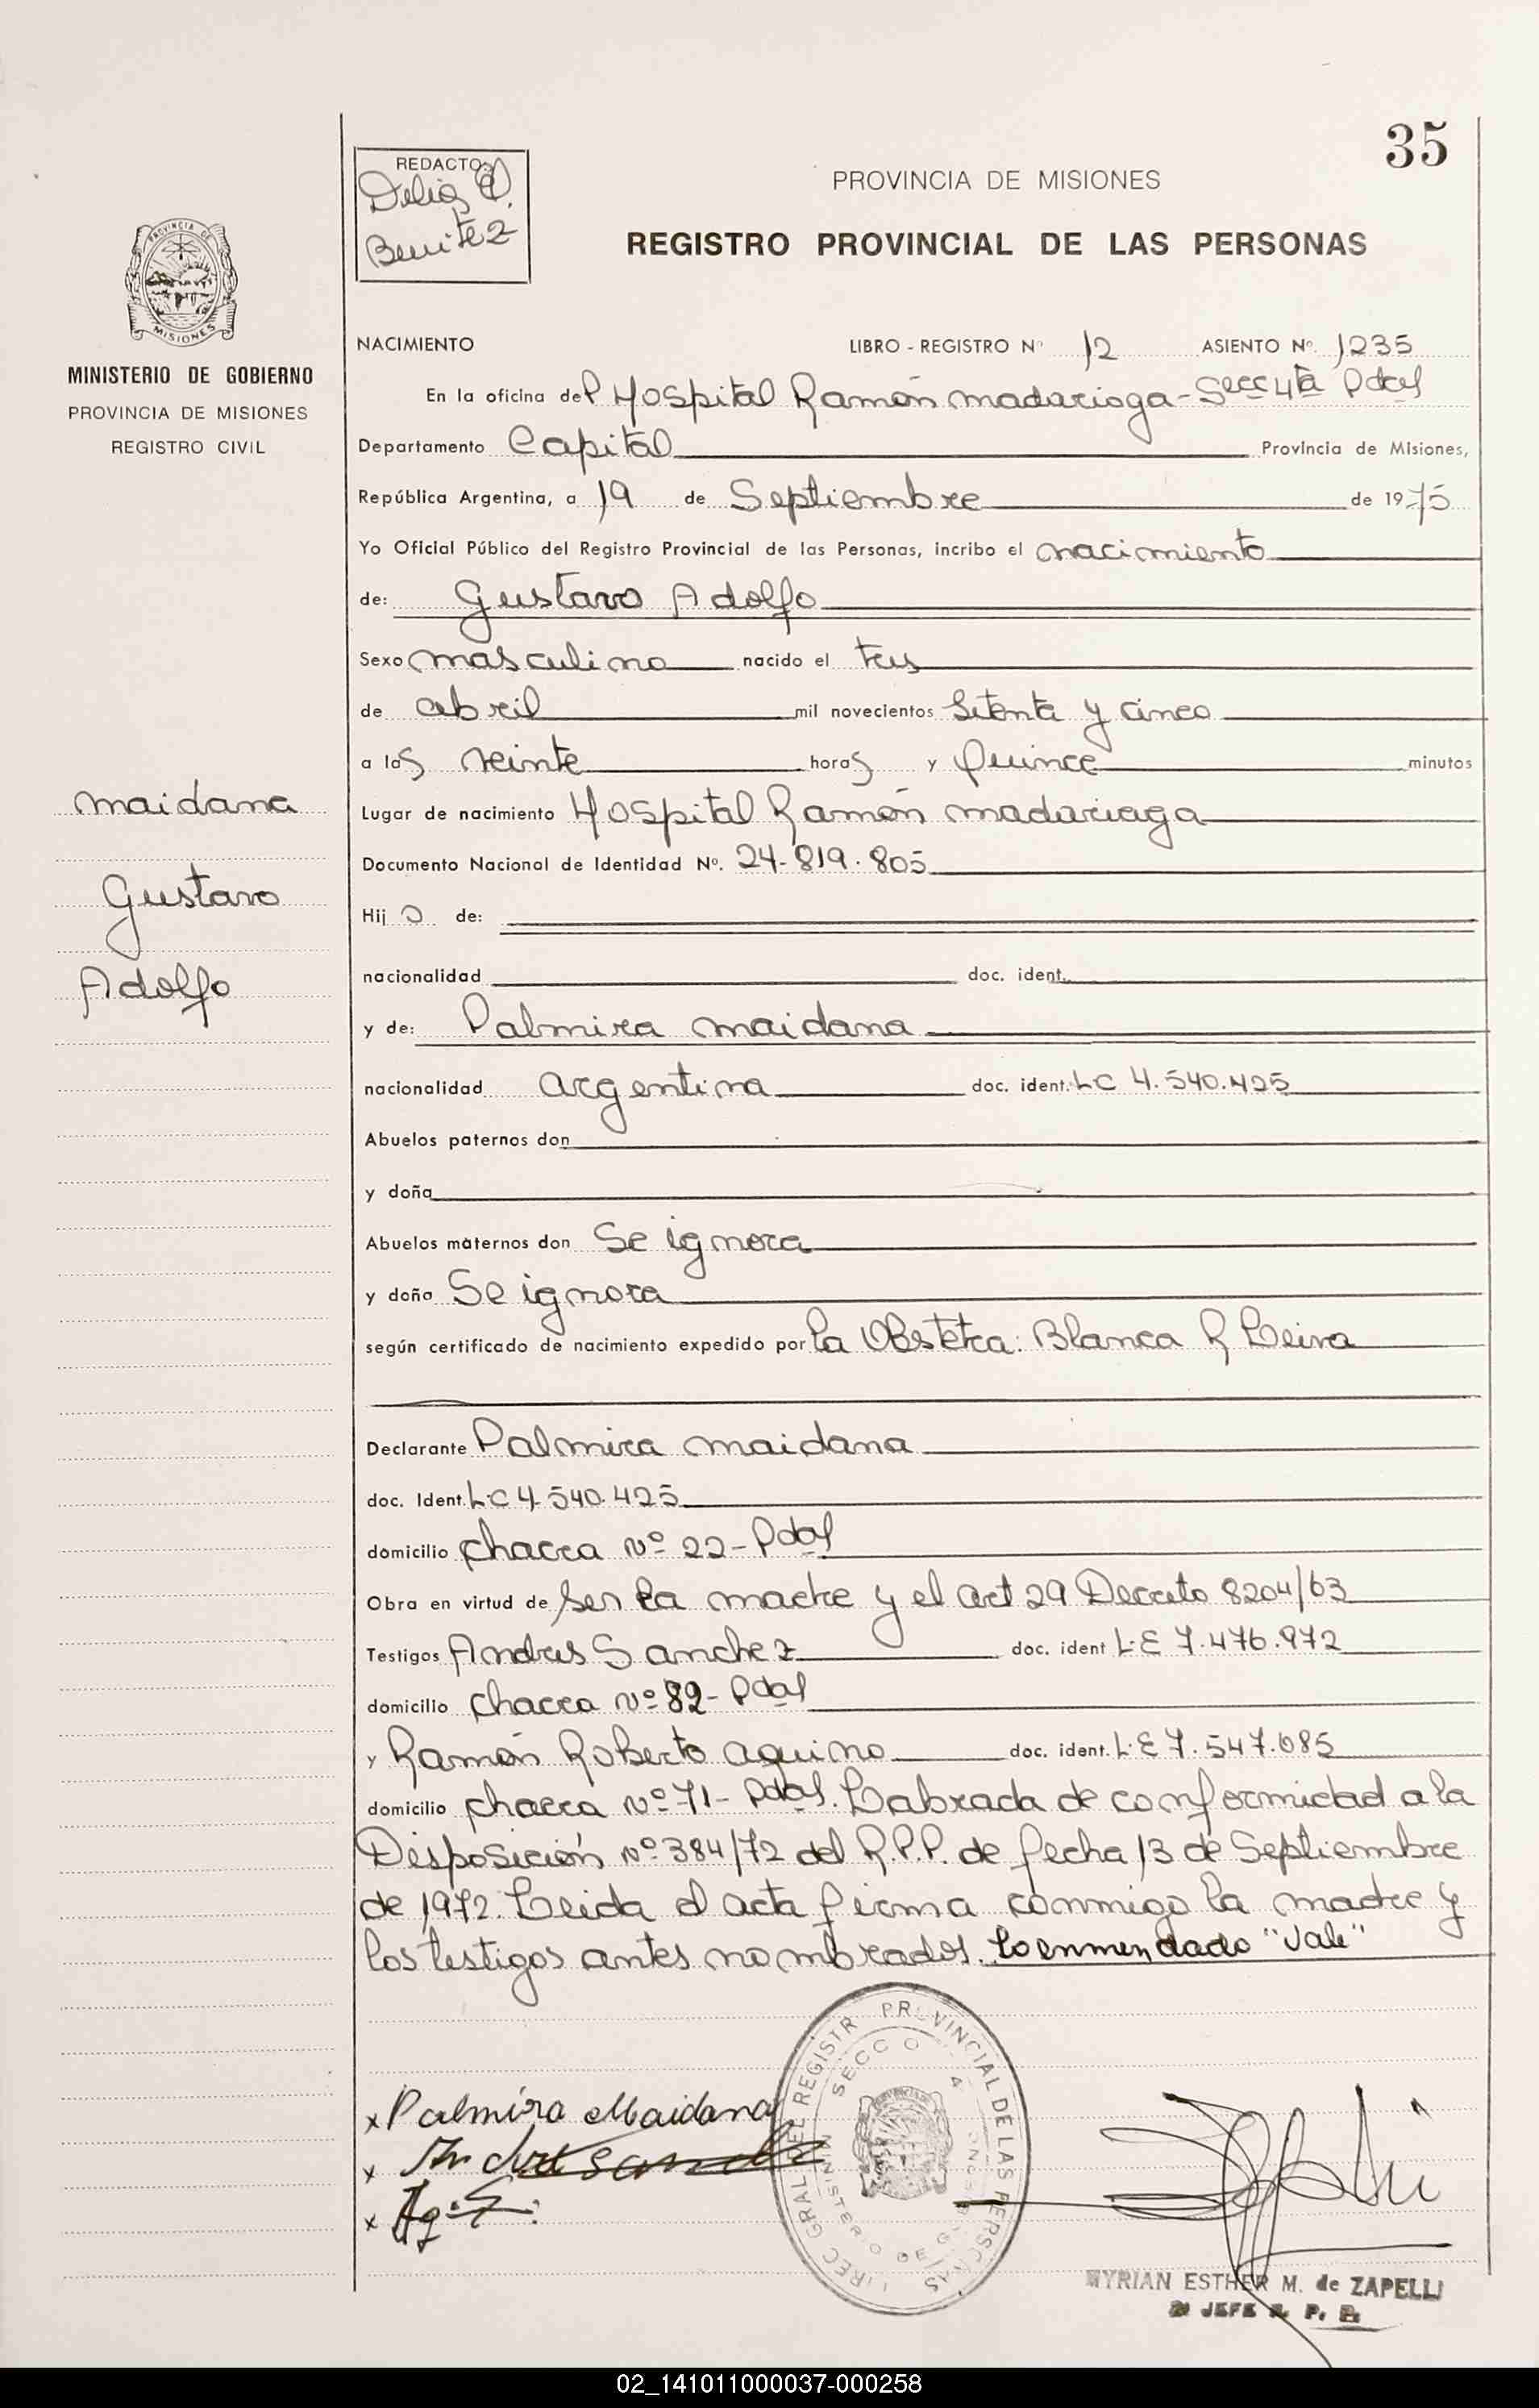 35
REDACTO:
Delia
Benitez
PROVINCIA DE MISIONES
REGISTRO PROVINCIAL DE LAS PERSONAS
PROVINCIA DE
MISIONES
MINISTERIO DE GOBIERNO
PROVINCIA DE MISIONES
REGISTRO CIVIL
NACIMIENTO LIBRO - REGISTRO Nº 12 ASIENTO Nº 1235
En la oficina del Hospital Ramón madariaga - Secc 4ta Pdas
Departamento Capital Provincia de Misiones,
República Argentina, a 19 de Septiembre de 1975
Yo Oficial Público del Registro Provincial de las Personas, incribo el nacimiento
de: Gustavo Adolfo
Sexo masculino nacido el tres
de abril mil novecientos Setenta y cinco
a las veinte horas y Quince minutos
Lugar de nacimiento Hospital Ramón madariaga
Documento Nacional de Identidad Nº. 24-819.805
Hijo de:
nacionalidad doc. ident.
y de: Palmira maidana
nacionalidad argentina doc. ident. LC 4.540.425
Abuelos paternos don
y doña
Abuelos maternos don Se ignora
y doña Se ignora
según certificado de nacimiento expedido por la Obstetra: Blanca R Leiva
Declarante Palmira maidana
doc. Ident. LC 4.540.425
domicilio chacra Nº 22-Pdas
Obra en virtud de ser la madre y el art 29 Decreto 8204/63
Testigos Andres Sanchez doc. ident L.E 7.476.972
domicilio chacra Nº 82- Pdas
y Ramón Roberto aquino doc. ident. L.E 7.547.685
domicilio chacra Nº 71- Pdas. Labrada de conformidad a la
Disposición Nº 384/72 del R.P.P. de fecha 13 de Septiembre
de 1972. Leida el acta firma conmigo la madre y
los testigos antes nombrados. Lo enmendado "Vale"
maidana
Gustavo
Adolfo
x Palmira Maidana
x
x
DIREC GRAL DEL REGISTR PROVINCIAL DE LAS PERSONAS
SECCIO 4
MINISTERIO DE GOBIERNO
MYRIAN ESTHER M. de ZAPELLI
JEFE R. P. P.
02_141011000037-000258